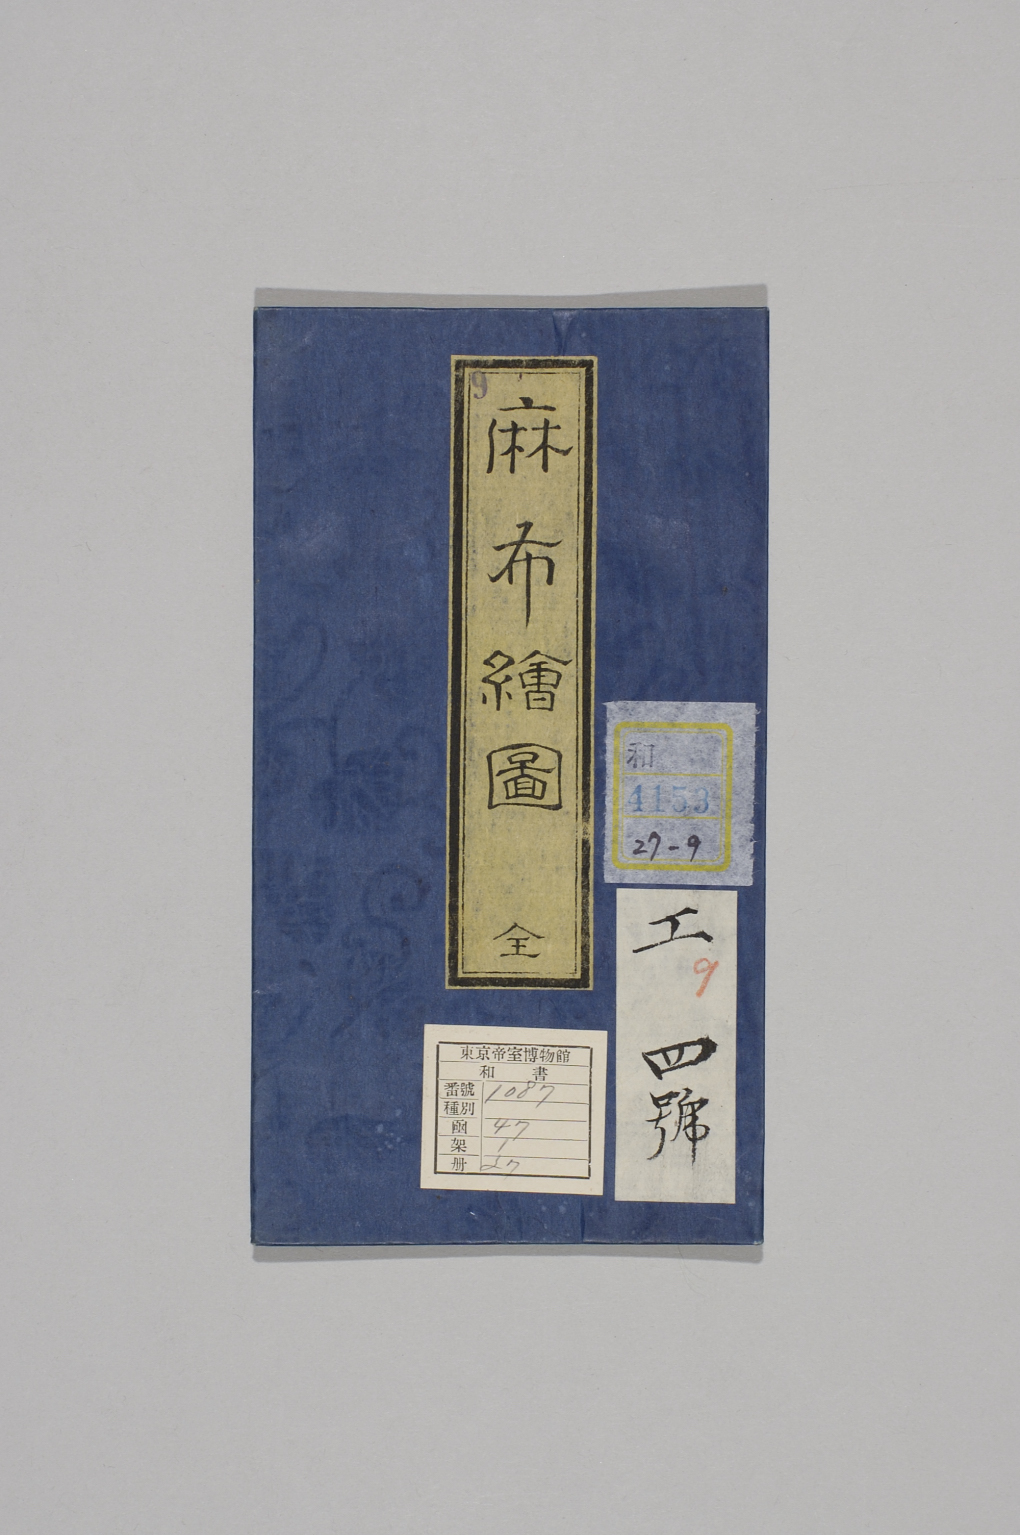 9
麻布繪圖 全
和
4153
27-9
工
9
四號
東京帝室博物館
和書
番號 1087
種別
函 47
架 1
册 27